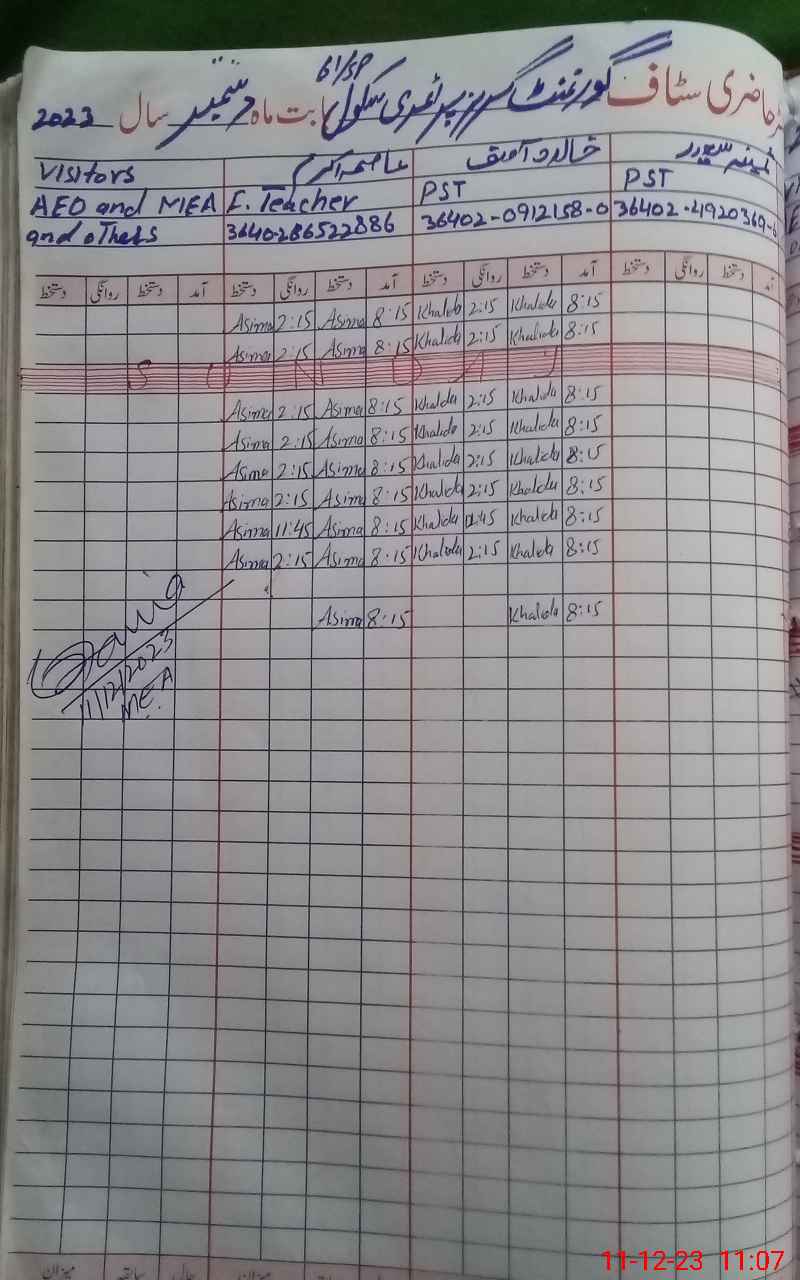 61/SP
حاضری سٹاف گورنمنٹ گرلز پرائمری سکول بابت ماہ دسمبر سال 2023
Visitors عاصمہ اکرم خالدہ
AEO and MEA E. Teacher PST PST
and others 36402-86522886 36402-0912158-0 36402-4920369-6
دستخط روانگی دستخط آمد دستخط روانگی دستخط آمد دستخط روانگی دستخط آمد دستخط روانگی دستخط آمد
Asima 2:15 Asima 8:15 Khalida 2:15 Khalida 8:15
Asima 2:15 Asima 8:15 Khalida 2:15 Khalida 8:15
S U N D A Y
Asima 2:15 Asima 8:15 Khalida 2:15 Khalida 8:15
Asima 2:15 Asima 8:15 Khalida 2:15 Khalida 8:15
Asima 2:15 Asima 8:15 Khalida 2:15 Khalida 8:15
Asima 2:15 Asima 8:15 Khalida 2:15 Khalida 8:15
Asima 11:45 Asima 8:15 Khalida 11:45 Khalida 8:15
Asima 2:15 Asima 8:15 Khalida 2:15 Khalida 8:15
Asima 8:15 Khalida 8:15
11/12/2023
MEA
میزان سابقہ حالی میزان
11-12-23 11:07